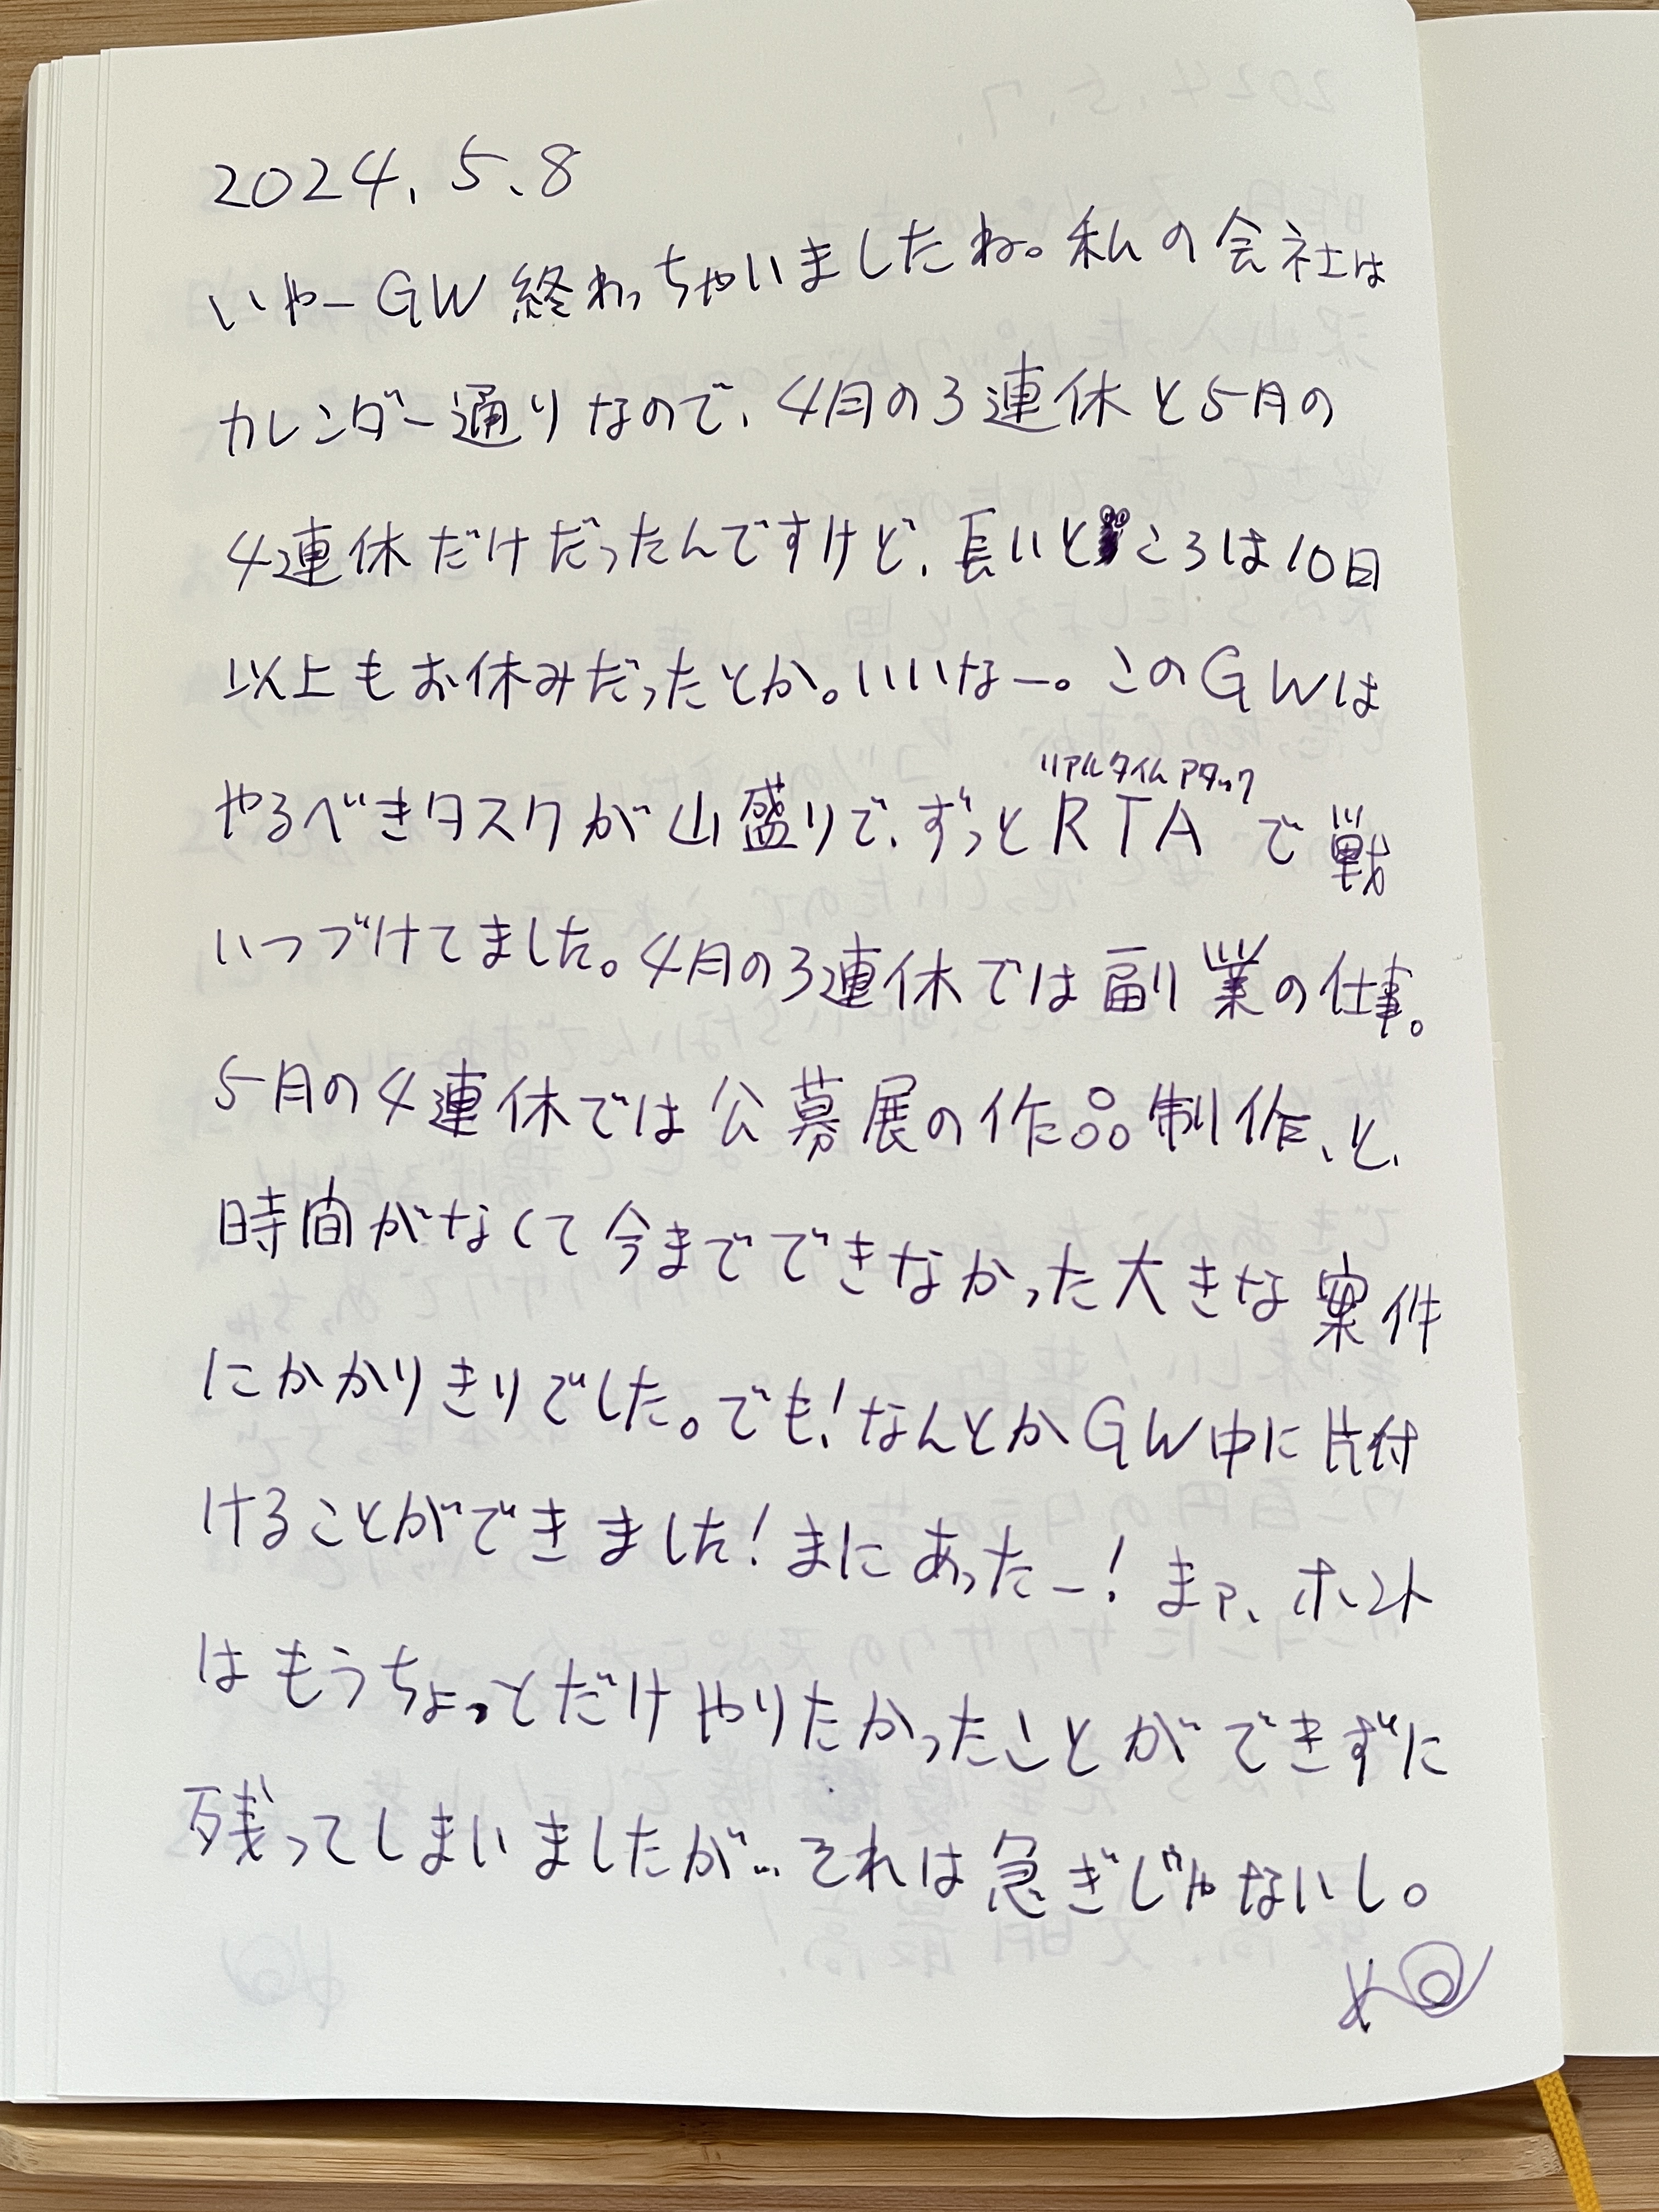 2024.5.8
いやーGW終わっちゃいましたね。私の会社は
カレンダー通りなので、4月の3連休と5月の
4連休だけだったんですけど、長いところは10日
以上もお休みだったとか。いいなー。このGWは
リアルタイムアタック
やるべきタスクが山盛りで、ずっとRTAで戦
いつづけてました。4月の3連休では副業の仕事。
5月の4連休では公募展の作品制作、と、
時間がなくて今までできなかった大きな案件
にかかりきりでした。でも!なんとかGW中に片付
けることができました!まにあったー!まァ、ホント
はもうちょっとだけやりたかったことができずに
残ってしまいましたが…それは急ぎじゃないし。